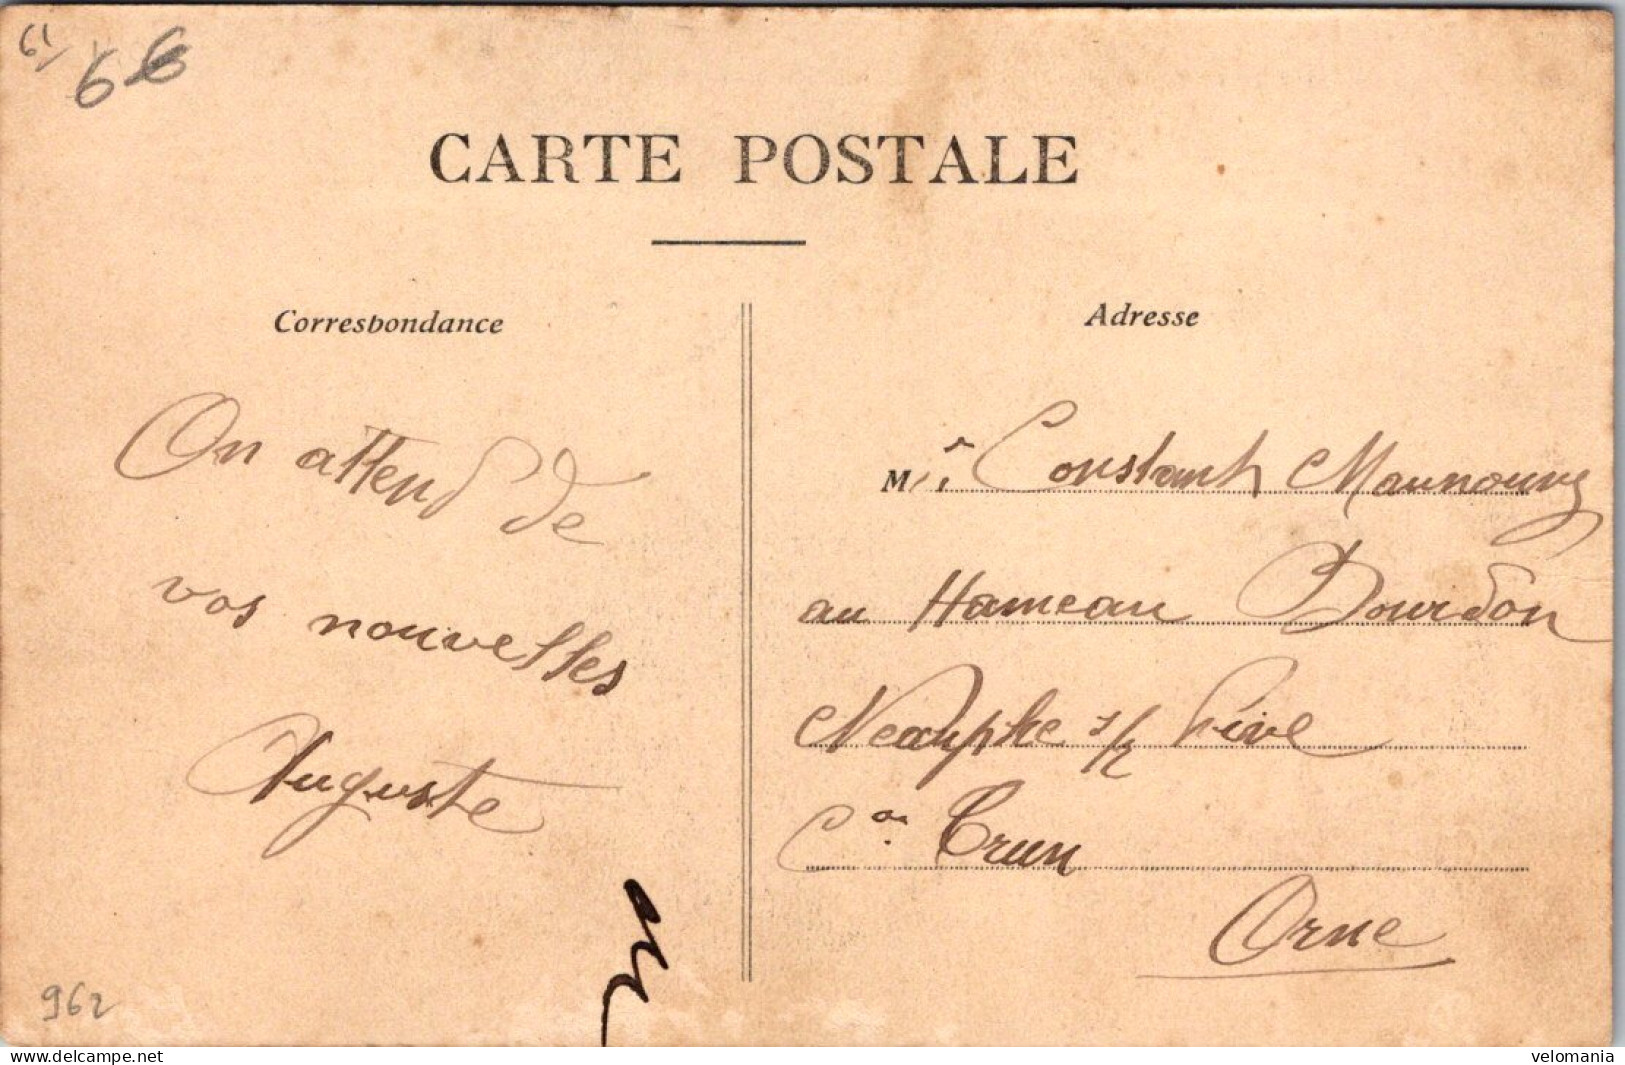 61/
66
CARTE POSTALE
Correspondance
Adresse
On attend de
vos nouvelles
Auguste
Mr Constant Maunoury
au Hameau Bourdon
Neauphe s/ Dive
Con Trun
Orne
962
www.delcampe.net
velomania